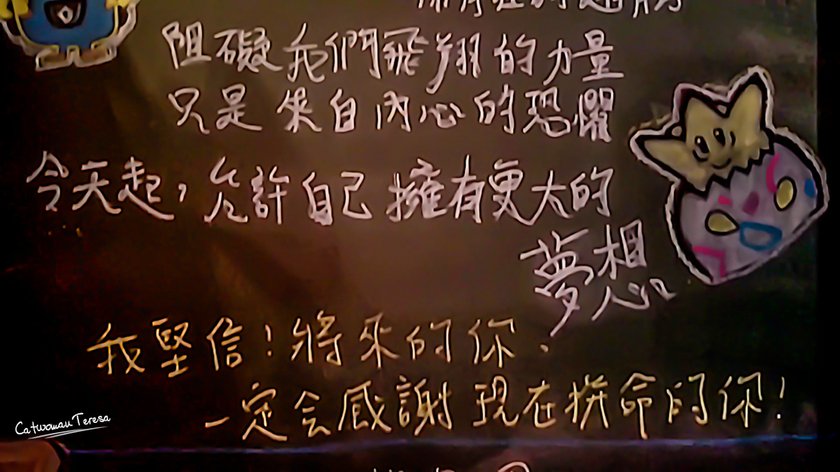 阻礙我們飛翔的力量
只是來自內心的恐懼
今天起，允許自己擁有更大的
夢想
我堅信！將來的你、
一定会感謝現在拼命的你！
Catwoman Teresa